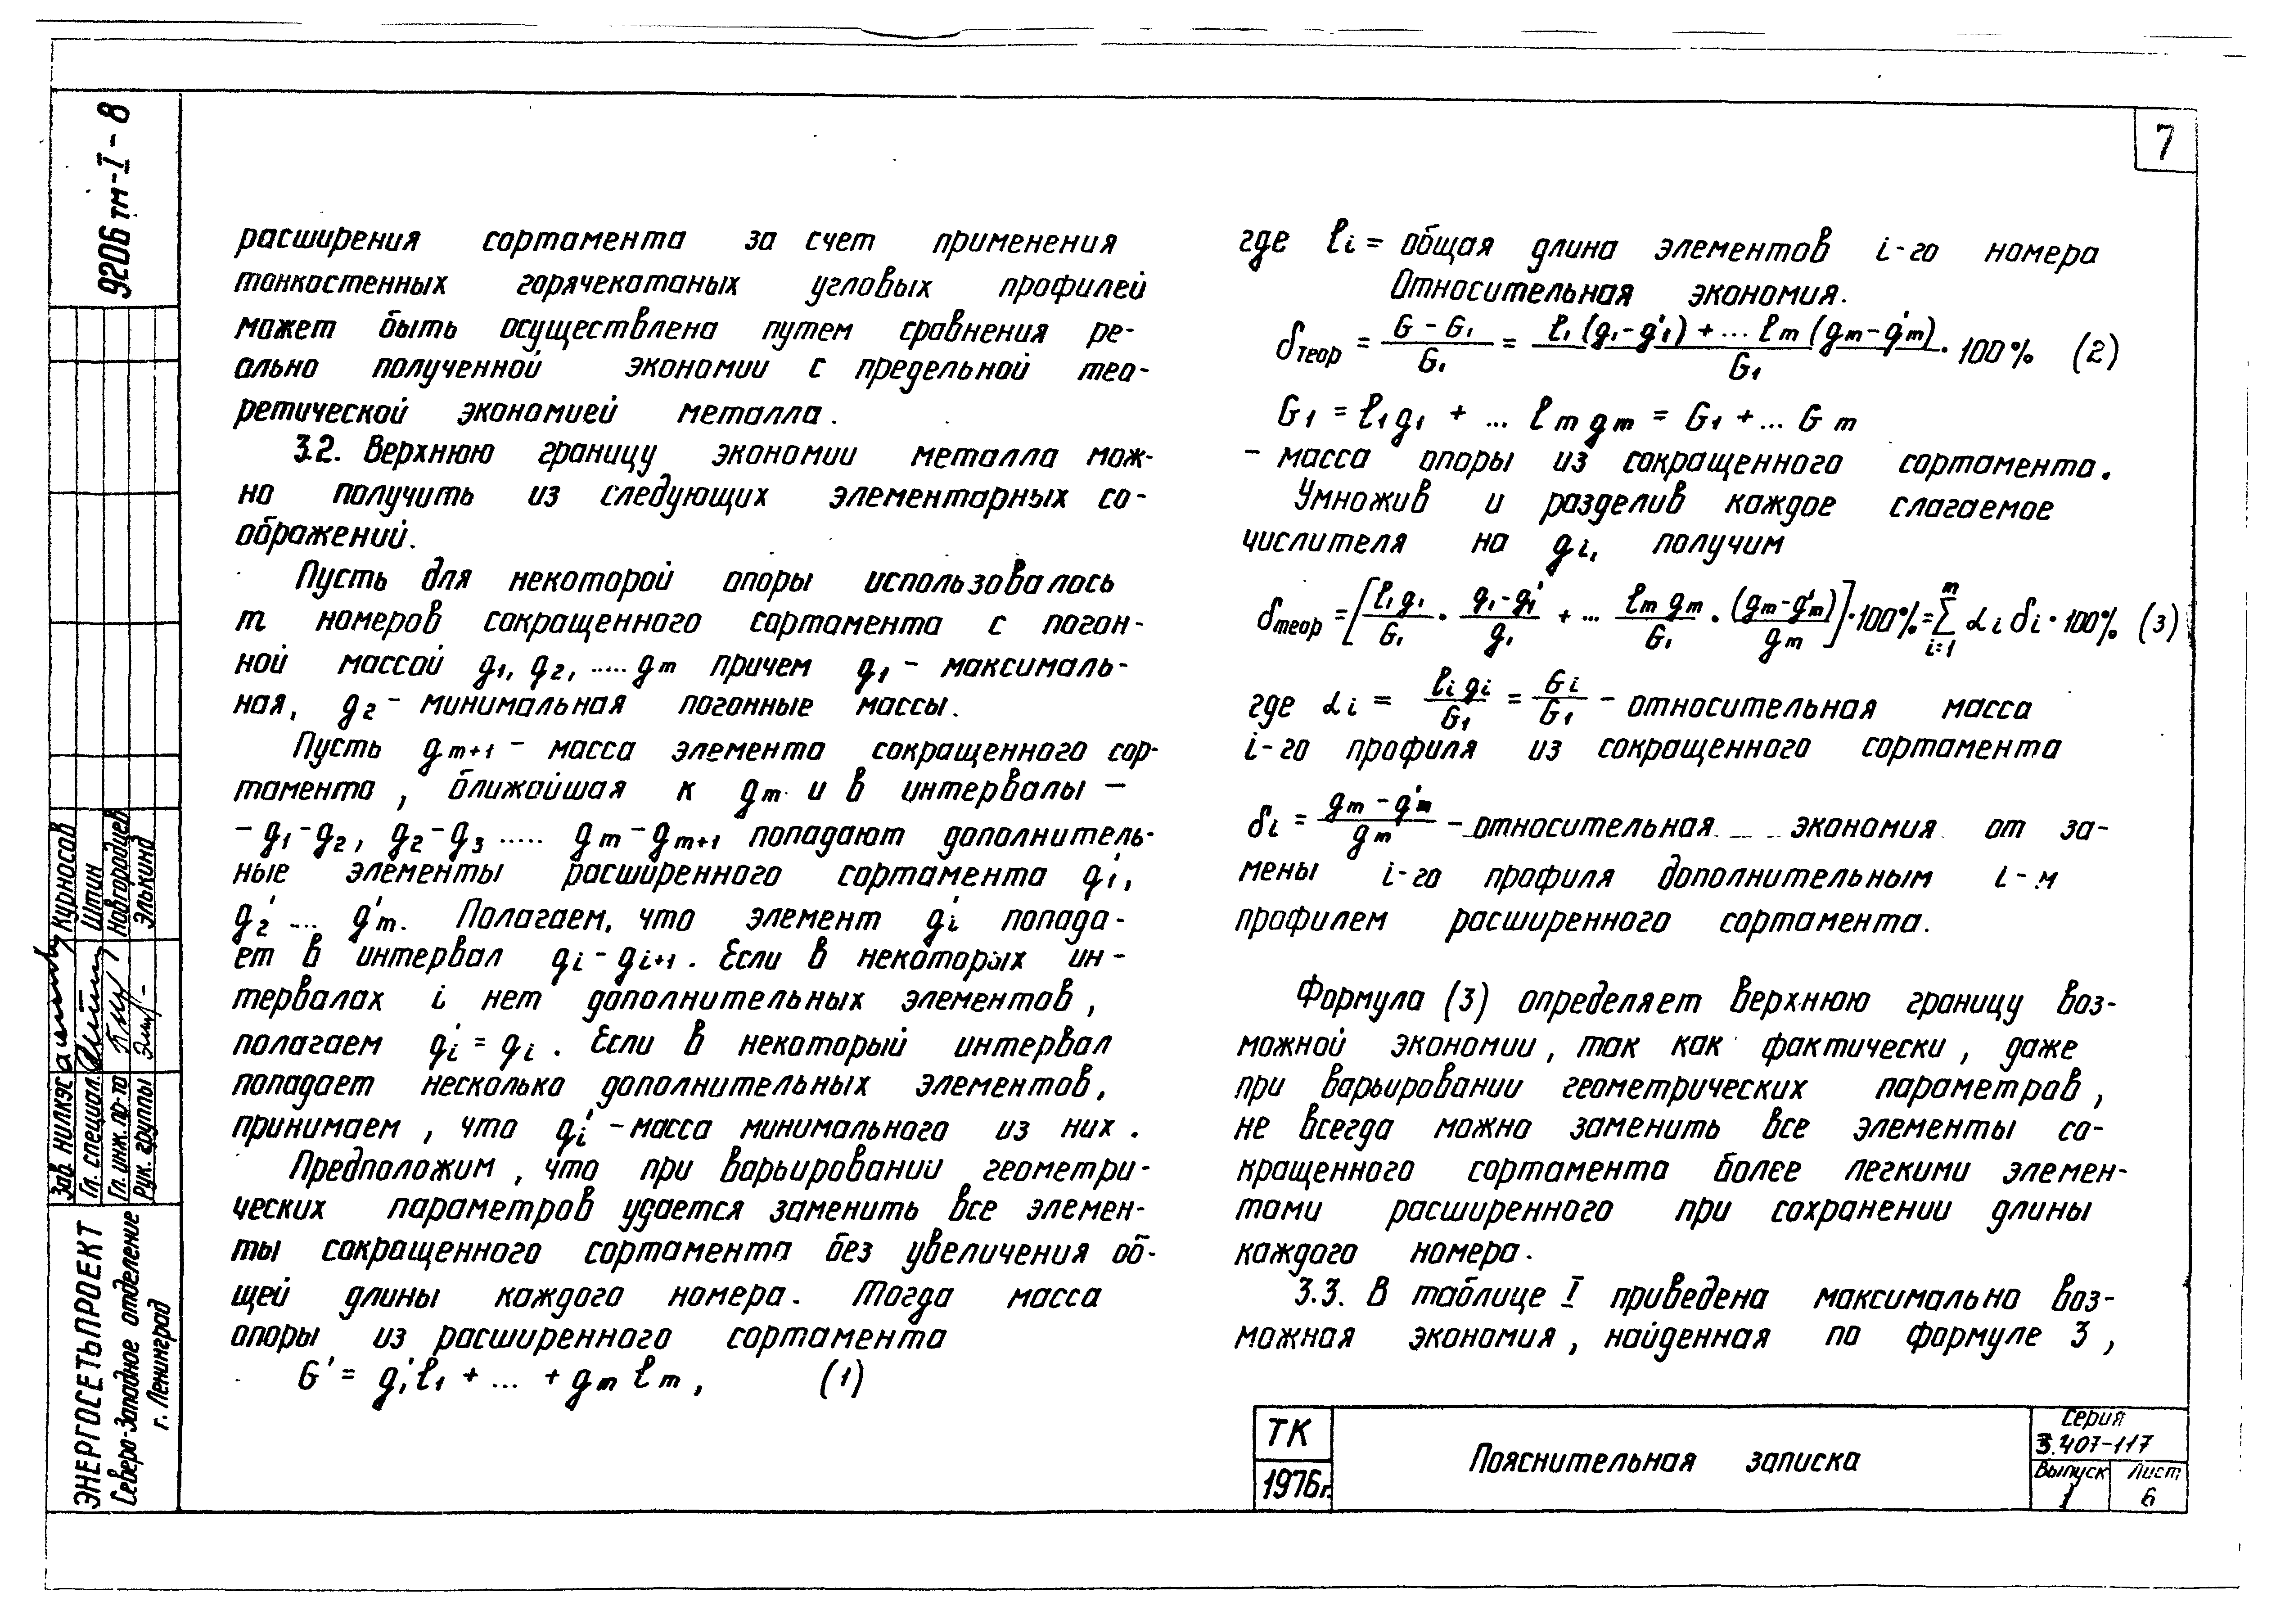 7
9206 тм-I-8
расширения сортамента за счет применения
тонкостенных горячекатаных угловых профилей
может быть осуществлена путем сравнения ре-
ально полученной экономии с предельной тео-
ретической экономией металла.
3.2. Верхнюю границу экономии металла мож-
но получить из следующих элементарных со-
ображений.
Пусть для некоторой опоры использовалось
m номеров сокращенного сортамента с погон-
ной массой g1, g2, ..... gm причем g1 - максималь-
ная, g2 - минимальная погонные массы.
Пусть gm+1 - масса элемента сокращенного сор-
тамента, ближайшая к gm и в интервалы -
- g1-g2, g2-g3 ..... gm-gm+1 попадают дополнитель-
ные элементы расширенного сортамента g'1,
g'2 ... g'm. Полагаем, что элемент g'i попада-
ет в интервал gi-gi+1. Если в некоторых ин-
тервалах i нет дополнительных элементов,
полагаем g'i = gi. Если в некоторый интервал
попадает несколько дополнительных элементов,
принимаем, что g'i - масса минимального из них.
Предположим, что при варьировании геометри-
ческих параметров удается заменить все элемен-
ты сокращенного сортамента без увеличения об-
щей длины каждого номера. Тогда масса
опоры из расширенного сортамента
G' = g'1l1 + ... + gm lm, (1)
где li = общая длина элементов i-го номера
Относительная экономия.
δтеор = (G - G1)/G1 = (l1(g1-g'1) + ... lm(gm-g'm))/G1 · 100% (2)
G1 = l1g1 + ... lm gm = G1 + ... Gm
- масса опоры из сокращенного сортамента.
Умножив и разделив каждое слагаемое
числителя на gi, получим
δтеор = [l1g1/G1 · (g1-g'1)/g1 + ... lm gm/G1 · (gm-g'm)/gm] · 100% = m∑i=1 αi δi · 100% (3)
где αi = li gi/G1 = Gi/G1 - относительная масса
i-го профиля из сокращенного сортамента
δi = (gm - g'm)/gm - относительная экономия от за-
мены i-го профиля дополнительным i-м
профилем расширенного сортамента.
Формула (3) определяет верхнюю границу воз-
можной экономии, так как фактически, даже
при варьировании геометрических параметров,
не всегда можно заменить все элементы со-
кращенного сортамента более легкими элемен-
тами расширенного при сохранении длины
каждого номера.
3.3. В таблице I приведена максимально воз-
можная экономия, найденная по формуле 3,
Зав. НИЛКЭС Курносов
Гл. специал. Штин
Гл. инж. пр-та Новгородцев
Рук. группы Элькинд
ЭНЕРГОСЕТЬПРОЕКТ
Северо-Западное отделение
г. Ленинград
ТК
1976г.
Пояснительная записка
Серия
3.407-117
Выпуск
1
Лист
6